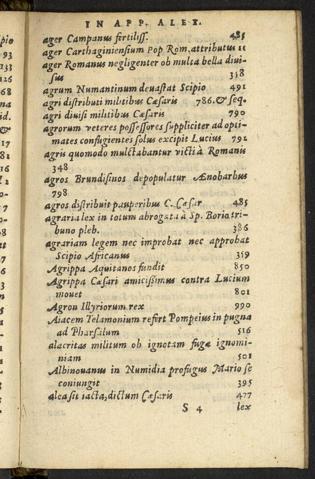 IN APP. ALEX.
ager Campanus fertiliss. 485
ager Carthaginiensium Pop Rom, attributus 11
ager Romanus negligenter ob multa bella divi-
sus 338
agrum Numantinum deuastat Scipio 491
agri distributi militibus Cæsaris 786. & seq.
agri diuisi militibus Cæsaris 790
agrorum veteres possessores suppliciter ad opti-
mates confugientes solus excipit Lucius 792
agris quomodo mulctabantur victi à Romanis
348
agros Brundisinos depopulatur Ænobarbus
798
agros distribuit pauperibus C. Cæsar 485
agraria lex in totum abrogata à Sp. Borio tri-
buno pleb. 386
agrariam legem nec improbat nec approbat
Scipio Africanus 359
Agrippa Aquitanos fundit 850
Agrippa Cæsari amicissimus contra Lucium
mouet 801
Agron Illyriorum rex 990
Aiacem Telamonium refert Pompeius in pugna
ad Pharsalum 516
alacritas militum ob ignotam fugæ ignomi-
niam 501
Albinouanus in Numidia profugus Mario se
coniungit 395
alea sit iacta, dictum Cæsaris 477
S 4 lex